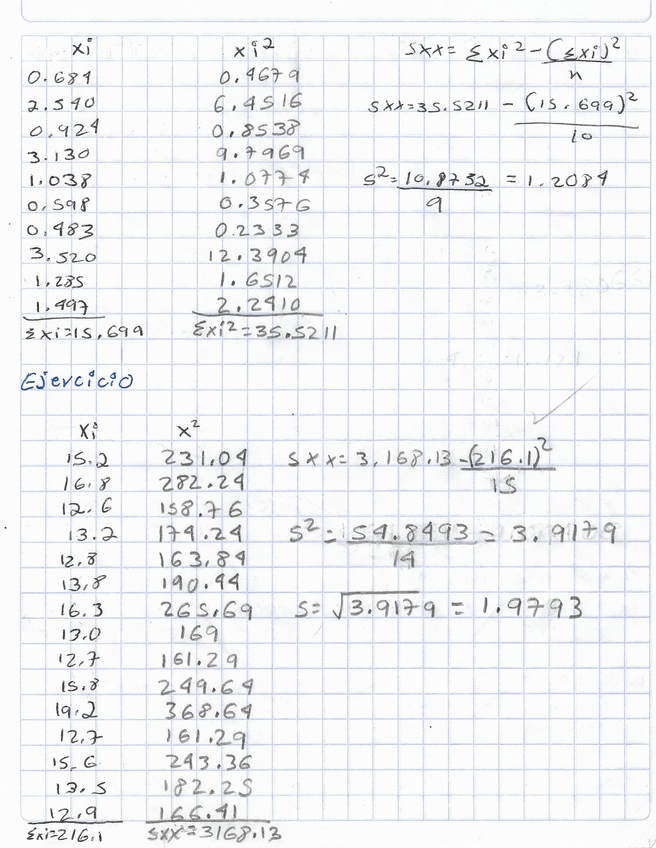 xi xi² sxx = Σxi² - (Σxi)²
n
0.684 0.4679
2.540 6.4516 sxx=35.5211 - (15.699)²
10
0.924 0.8538
3.130 9.7969
1.038 1.0774 s²= 10.8732 = 1.2084
9
0.598 0.3576
0.483 0.2333
3.520 12.3904
1.285 1.6512
1.497 2.2410
Σxi=15.699 Σxi²=35.5211
Ejercicio
Xi x²
15.2 231.04 sxx= 3,168.13 - (216.1)²
15
16.8 282.24
12.6 158.76
13.2 174.24 s²= 54.8493 = 3.9179
14
12.8 163.84
13.8 190.44
16.3 265.69 s= √3.9179 = 1.9793
13.0 169
12.7 161.29
15.8 249.64
19.2 368.64
12.7 161.29
15.6 243.36
13.5 182.25
12.9 166.41
Σxi=216.1 sxx=3168.13